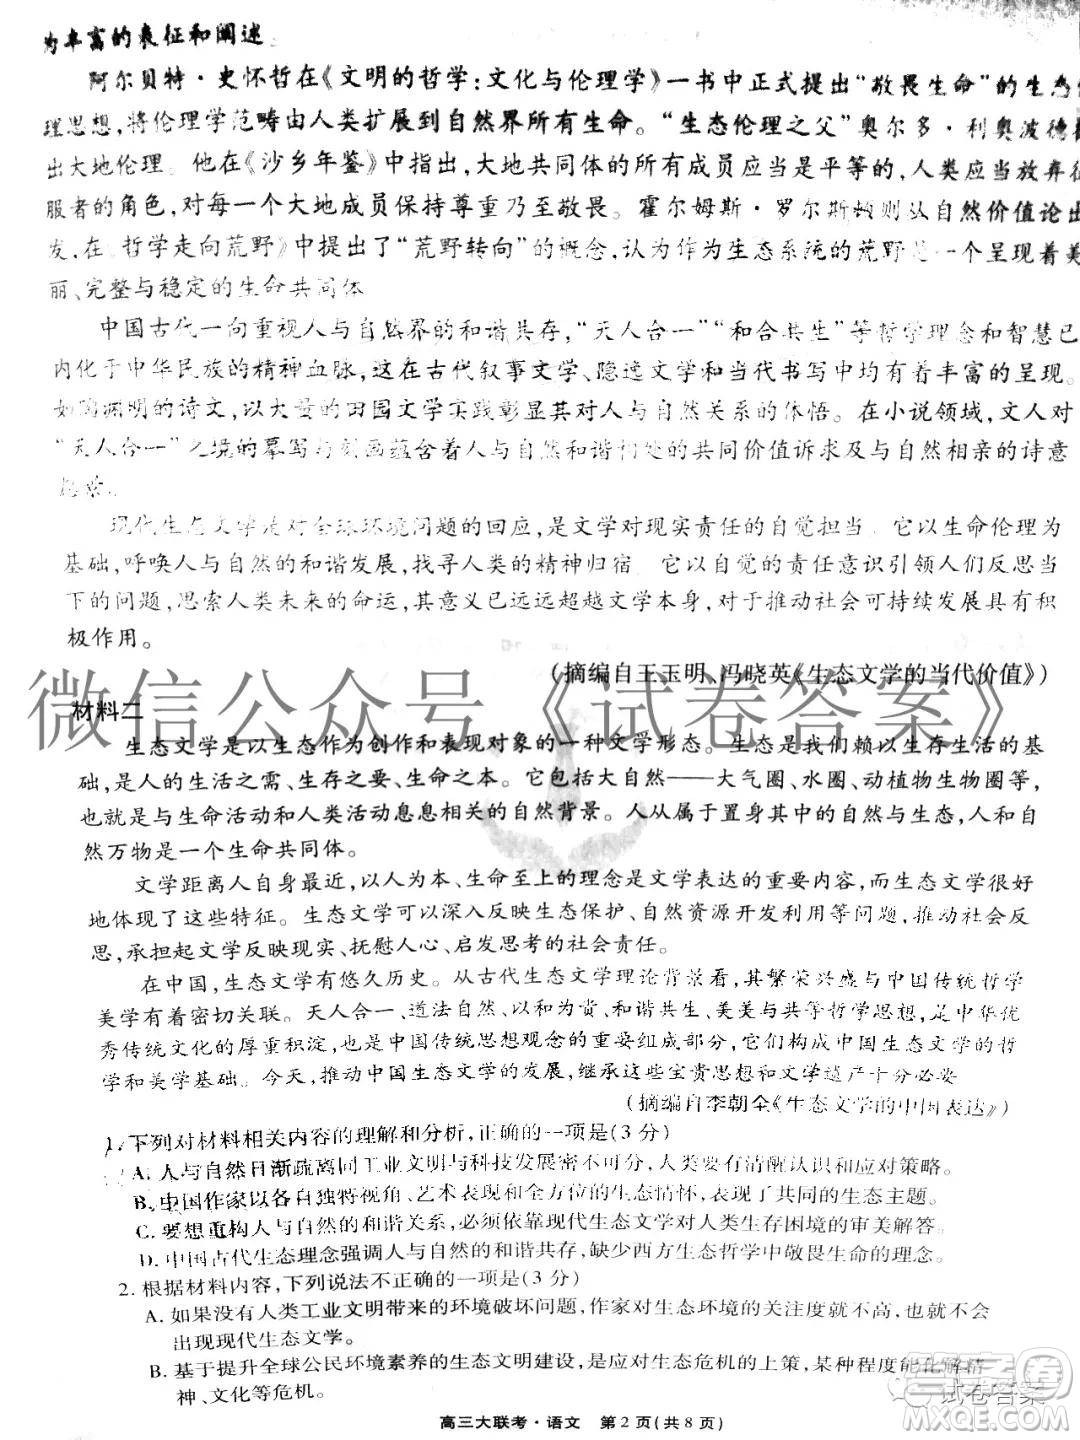 为丰富的表征和阐述
阿尔贝特·史怀哲在《文明的哲学:文化与伦理学》一书中正式提出“敬畏生命”的生态
理思想,将伦理学范畴由人类扩展到自然界所有生命。“生态伦理之父”奥尔多·利奥波德
出大地伦理。他在《沙乡年鉴》中指出,大地共同体的所有成员应当是平等的,人类应当放弃征
服者的角色,对每一个大地成员保持尊重乃至敬畏。霍尔姆斯·罗尔斯顿则从自然价值论出
发,在《哲学走向荒野》中提出了“荒野转向”的概念,认为作为生态系统的荒野是一个呈现着美
丽、完整与稳定的生命共同体
中国古代一向重视人与自然界的和谐共存,“天人合一”“和合共生”等哲学理念和智慧已
内化于中华民族的精神血脉,这在古代叙事文学、隐逸文学和当代书写中均有着丰富的呈现。
如陶渊明的诗文,以大量的田园文学实践彰显其对人与自然关系的体悟。在小说领域,文人对
“天人合一”之境的摹写与刻画蕴含着人与自然和谐相处的共同价值诉求及与自然相亲的诗意
现代生态文学是对全球环境问题的回应,是文学对现实责任的自觉担当。它以生命伦理为
基础,呼唤人与自然的和谐发展,找寻人类的精神归宿。它以自觉的责任意识引领人们反思当
下的问题,思索人类未来的命运,其意义已远远超越文学本身,对于推动社会可持续发展具有积
极作用。
(摘编自王玉明、冯晓英《生态文学的当代价值》)
微信公众号《试卷答案》
材料二
生态文学是以生态作为创作和表现对象的一种文学形态。生态是我们赖以生存生活的基
础,是人的生活之需、生存之要、生命之本。它包括大自然——大气圈、水圈、动植物生物圈等,
也就是与生命活动和人类活动息息相关的自然背景。人从属于这个大的自然与生态,人和自
然万物是一个生命共同体。
文学距离人自身最近,以人为本、生命至上的理念是文学表达的重要内容,而生态文学很好
地体现了这些特征。生态文学可以深入反映生态保护、自然资源开发利用等问题,推动社会反
思,承担起文学反映现实、抚慰人心、启发思考的社会责任。
在中国,生态文学有悠久历史。从古代生态文学理论背景看,其繁荣兴盛与中国传统哲学
美学有着密切关联。天人合一、道法自然、以和为贵、和谐共生、美美与共等哲学思想,是中华优
秀传统文化的厚重积淀,也是中国传统思想观念的重要组成部分,它们构成中国生态文学的哲
学和美学基础。今天,推动中国生态文学的发展,继承这些宝贵思想和文学遗产十分必要
(摘编自李朝全《生态文学的中国表达》)
1. 下列对材料相关内容的理解和分析,正确的一项是(3 分)
A. 人与自然日渐疏离同工业文明与科技发展密不可分,人类要有清醒认识和应对策略。
B. 中国作家以各自独特视角、艺术表现和全方位的生态情怀,表现了共同的生态主题。
C. 要想重构人与自然的和谐关系,必须依靠现代生态文学对人类生存困境的审美解答。
D. 中国古代生态理念强调人与自然的和谐共存,缺少西方生态哲学中敬畏生命的理念。
2. 根据材料内容,下列说法不正确的一项是(3 分)
A. 如果没有人类工业文明带来的环境破坏问题,作家对生态环境的关注度就不高,也就不会
出现现代生态文学。
B. 基于提升全球公民环境素养的生态文明建设,是应对生态危机的上策,某种程度能化解精
神、文化等危机。
试卷答案
高三大联考·语文 第 2 页(共 8 页)